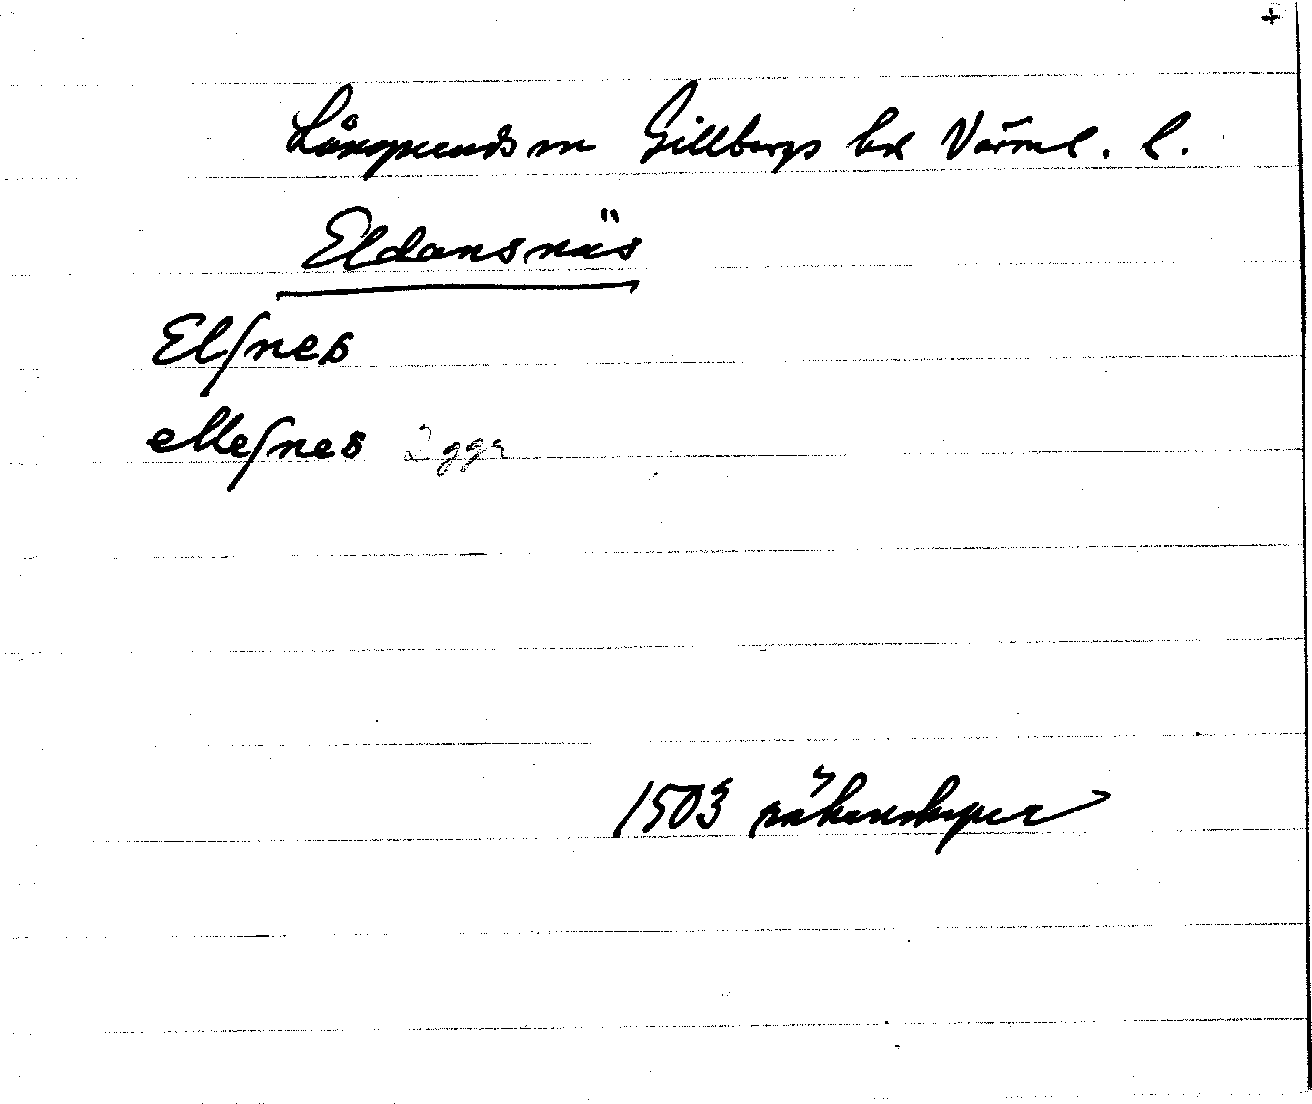 +
Långseruds sn Gillbergs hd Värml. l.
Eldansnäs
Elſnes
elleſnes 2 ggr
1503 räkenskaper